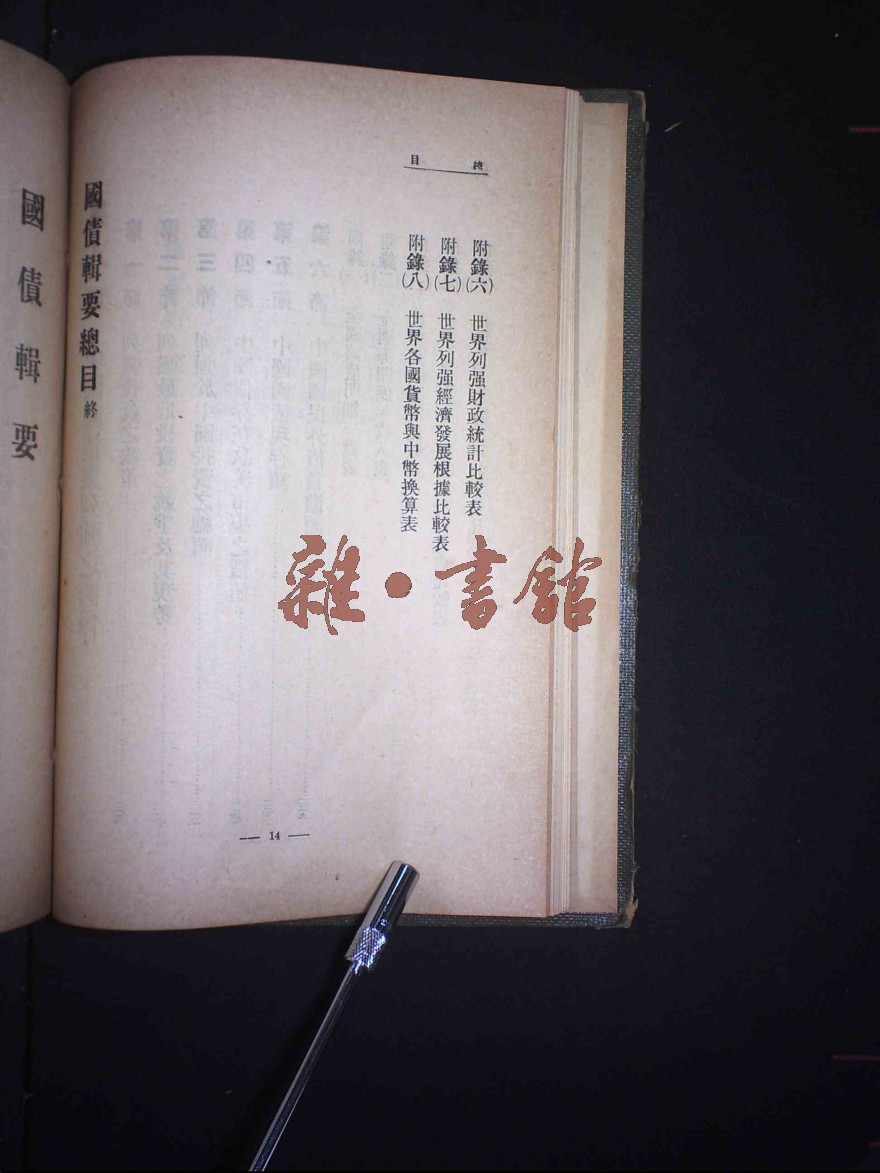 總目
附錄(六) 世界列强財政統計比較表
附錄(七) 世界列强經濟發展根據比較表
附錄(八) 世界各國貨幣與中幣換算表
國債輯要總目終
— 14 —
國債輯要
雜·書館